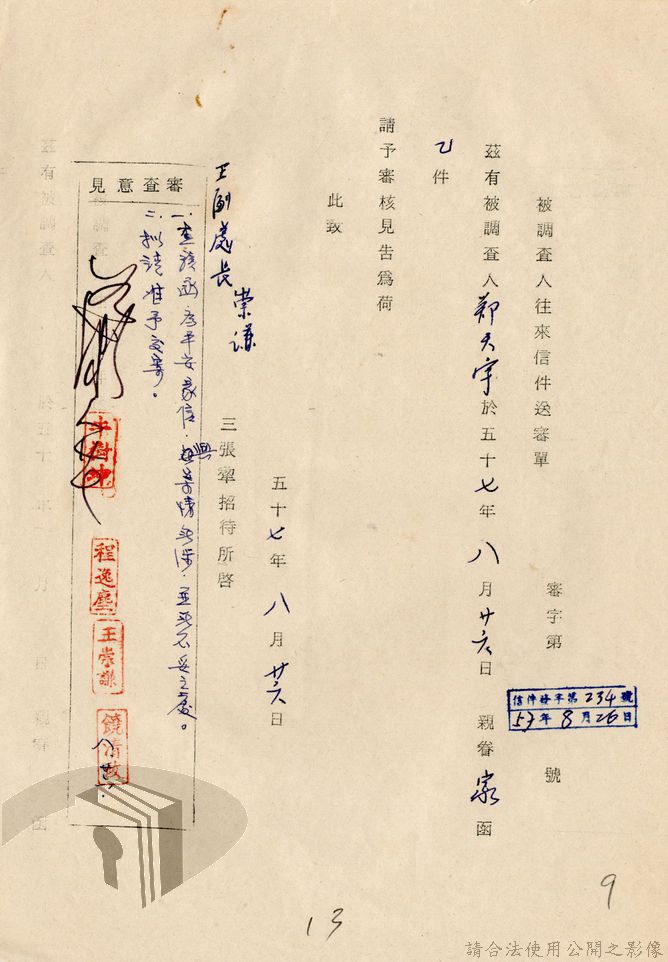 被調查人往來信件送審單
審字第　　號
信件登字第234號
57年8月26日
茲有被調查人鄭天宇於五十七年八月廿六日親眷家函
乙件
請予審核見告為荷
此致
王副處長崇謙
三張犂招待所啓
五十七年八月廿六日
審查意見
一、查該函為平安家信，與案情無涉，並無不妥之處。
二、擬請准予交寄。
程逸塵
王崇謙
9
13
請合法使用公開之影像